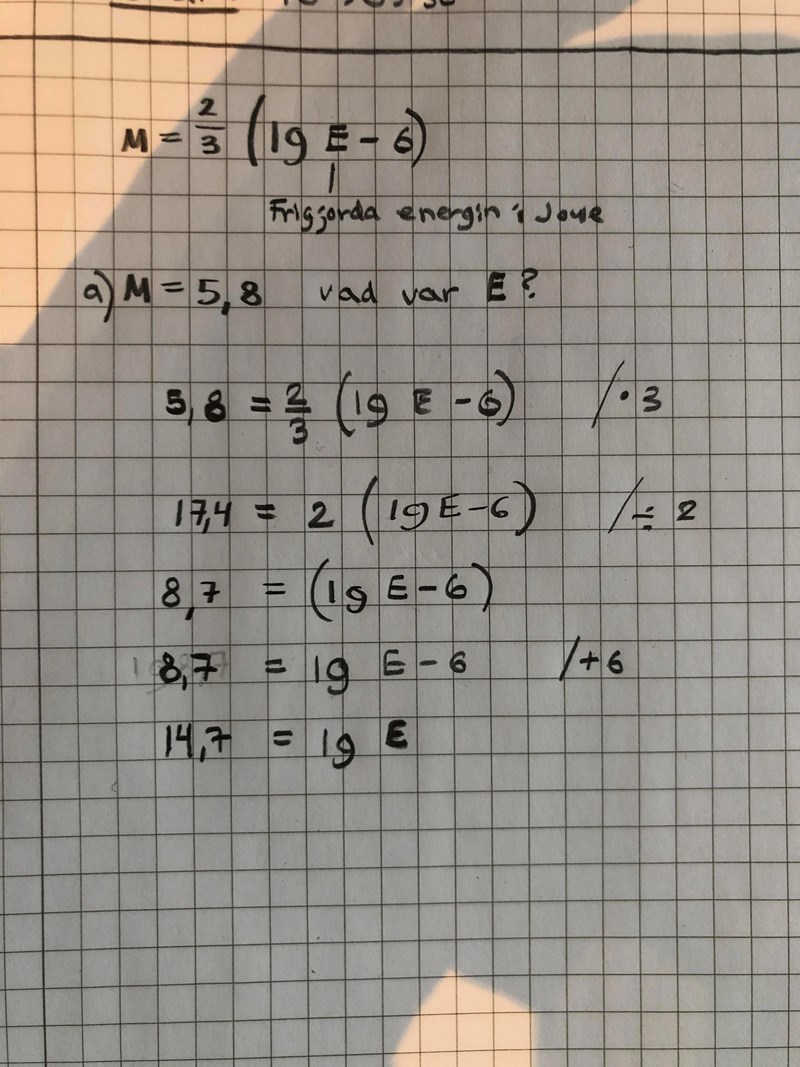 M = 2/3 (lg E - 6)
Friggjorda energin i Joue
a) M = 5,8 vad var E?
5,8 = 2/3 (lg E - 6) / · 3
17,4 = 2 (lg E - 6) / ÷ 2
8,7 = (lg E - 6)
8,7 = lg E - 6 / + 6
14,7 = lg E